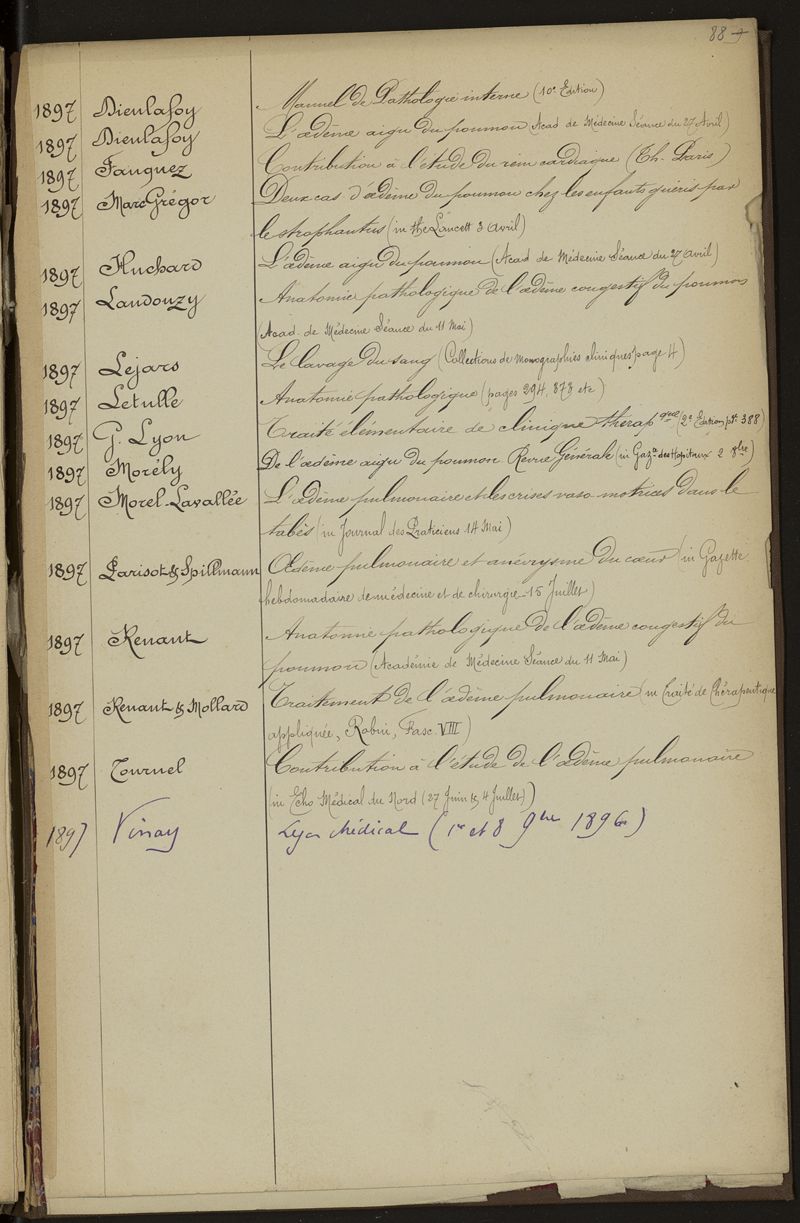 88
1897 Dieulafoy Manuel de Pathologie interne (10e Edition)
1897 Dieulafoy L'œdème aigu du poumon (Acad de Médecine Séance du 27 Avril)
1897 Fauquez Contribution à l'étude du rein cardiaque (Th. Paris)
1897 Marc Grégor Deux cas d'œdème du poumon chez les enfants guéris par
le strophantus (in the Lancett 3 Avril)
1897 Huchard L'œdème aigu du poumon (Acad de Médecine Séance du 27 avril)
1897 Landouzy Anatomie pathologique de l'œdème congestif du poumon
(Acad. de Médecine Séance du 11 Mai)
1897 Lejars Le lavage du sang (Collections de monographies cliniques page 4)
1897 Letulle Anatomie pathologique (pages 294, 373 etc)
1897 G. Lyon Traité élémentaire de clinique thérapque (2e Edition, p. 388)
1897 Morély De l'œdème aigu du poumon Revue Générale (in Gaz. des Hopitaux 2 8bre)
1897 Morel-Lavallée L'œdème pulmonaire et les crises vaso-motrices dans le
tabès (in Journal des Praticiens 14 Mai)
1897 Parisot & Spillmann Œdème pulmonaire et anévrysme du cœur (in Gazette
hebdomadaire de médecine et de chirurgie 15 Juillet)
1897 Renaut Anatomie pathologique de l'œdème congestif du
poumon (Académie de Médecine Séance du 11 Mai)
1897 Renaut & Mollard Traitement de l'œdème pulmonaire (in Traité de Thérapeutique
appliquée, Robin, Fasc. VIII)
1897 Tournel Contribution à l'étude de l'œdème pulmonaire
(in Echo Médical du Nord (27 Juin & 4 Juillet))
1897 Vinay Lyon Médical (1er et 8 9bre 1896)